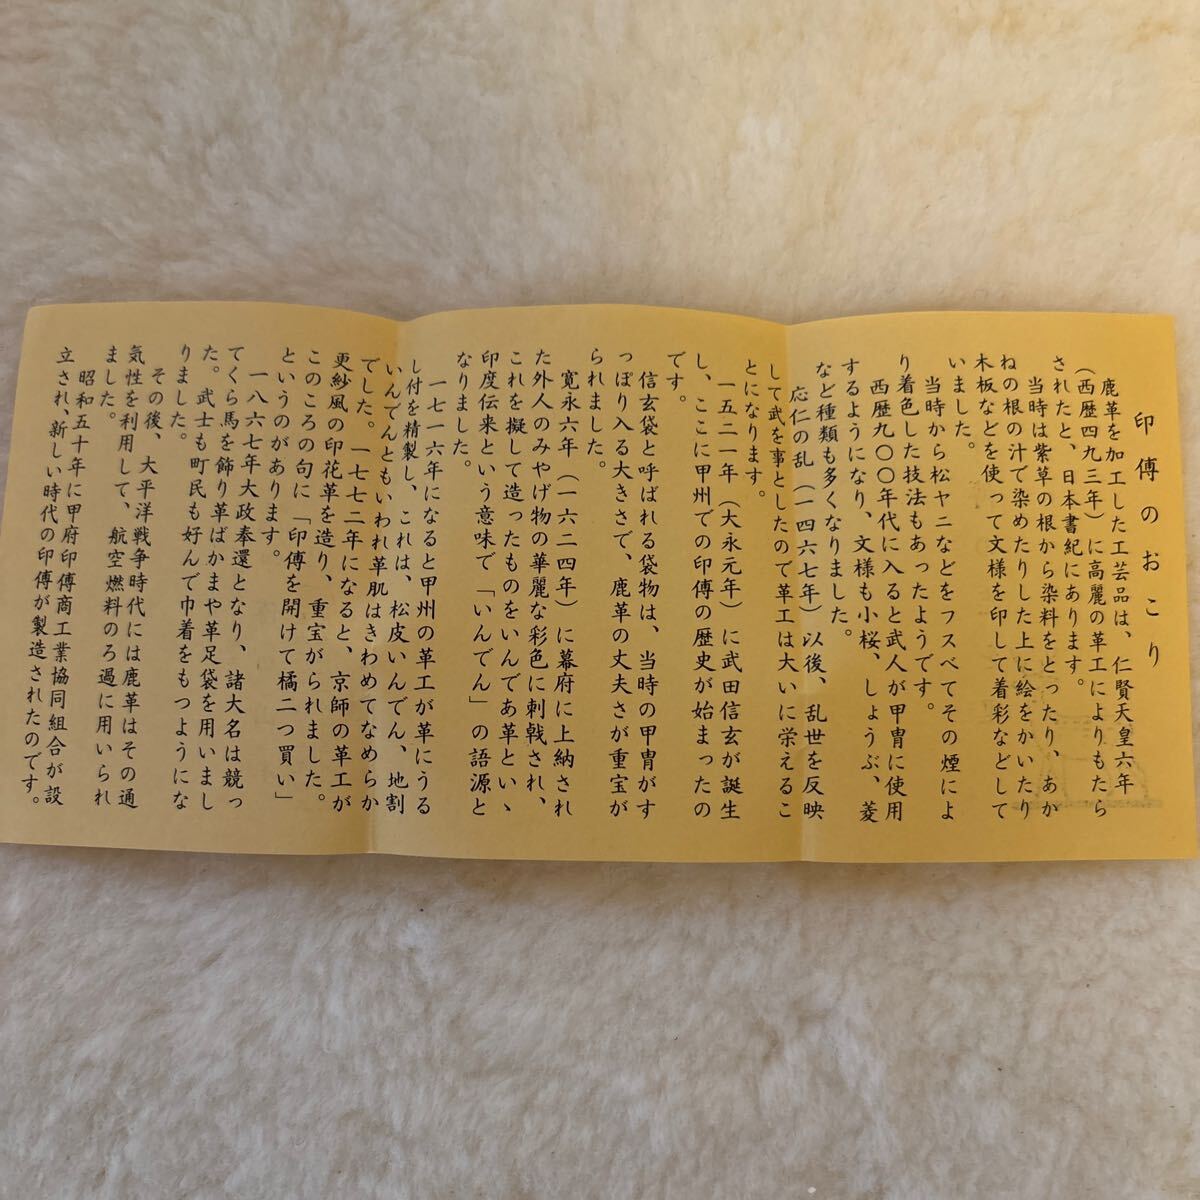 印傅のおこり
鹿革を加工した工芸品は、仁賢天皇六年
(西歴四九三年)に高麗の革工によりもたら
されたと、日本書紀にあります。
当時は紫草の根から染料をとったり、あか
ねの根の汁で染めたりした上に絵をかいたり
木板などを使って文様を印して着彩などして
いました。
当時から松ヤニなどをフスベてその煙によ
り着色した技法もあったようです。
西歴九〇〇年代に入ると武人が甲冑に使用
するようになり、文様も小桜、しょうぶ、菱
など種類も多くなりました。
応仁の乱(一四六七年)以後、乱世を反映
して武を事としたので革工は大いに栄えるこ
とになります。
一五二一年(大永元年)に武田信玄が誕生
し、ここに甲州での印傅の歴史が始まったの
です。
信玄袋と呼ばれる袋物は、当時の甲冑がす
っぽり入る大きさで、鹿革の丈夫さが重宝が
られました。
寛永六年(一六二四年)に幕府に上納され
た外人のみやげ物の華麗な彩色に刺戟され、
これを擬して造ったものをいんであ革といゝ
印度伝来という意味で「いんでん」の語源と
なりました。
一七一六年になると甲州の革工が革にうる
し付を精製し、これは、松皮いんでん、地割
いんでんともいわれ革肌はきわめてなめらか
でした。一七七二年になると、京師の革工が
更紗風の印花革を造り、重宝がられました。
このころの句に「印傅を開けて橘二つ買い」
というのがあります。
一八六七年大政奉還となり、諸大名は競っ
てくら馬を飾り革ばかまや革足袋を用いまし
た。武士も町民も好んで巾着をもつようにな
りました。
その後、大平洋戦争時代には鹿革はその通
気性を利用して、航空燃料のろ過に用いられ
ました。
昭和五十年に甲府印傅商工業協同組合が設
立され、新しい時代の印傅が製造されたのです。